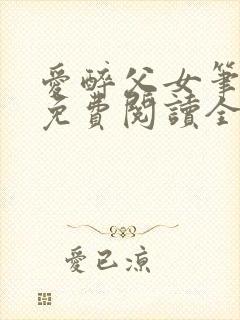 愛醉父女筆
免費閱讀全
愛已涼